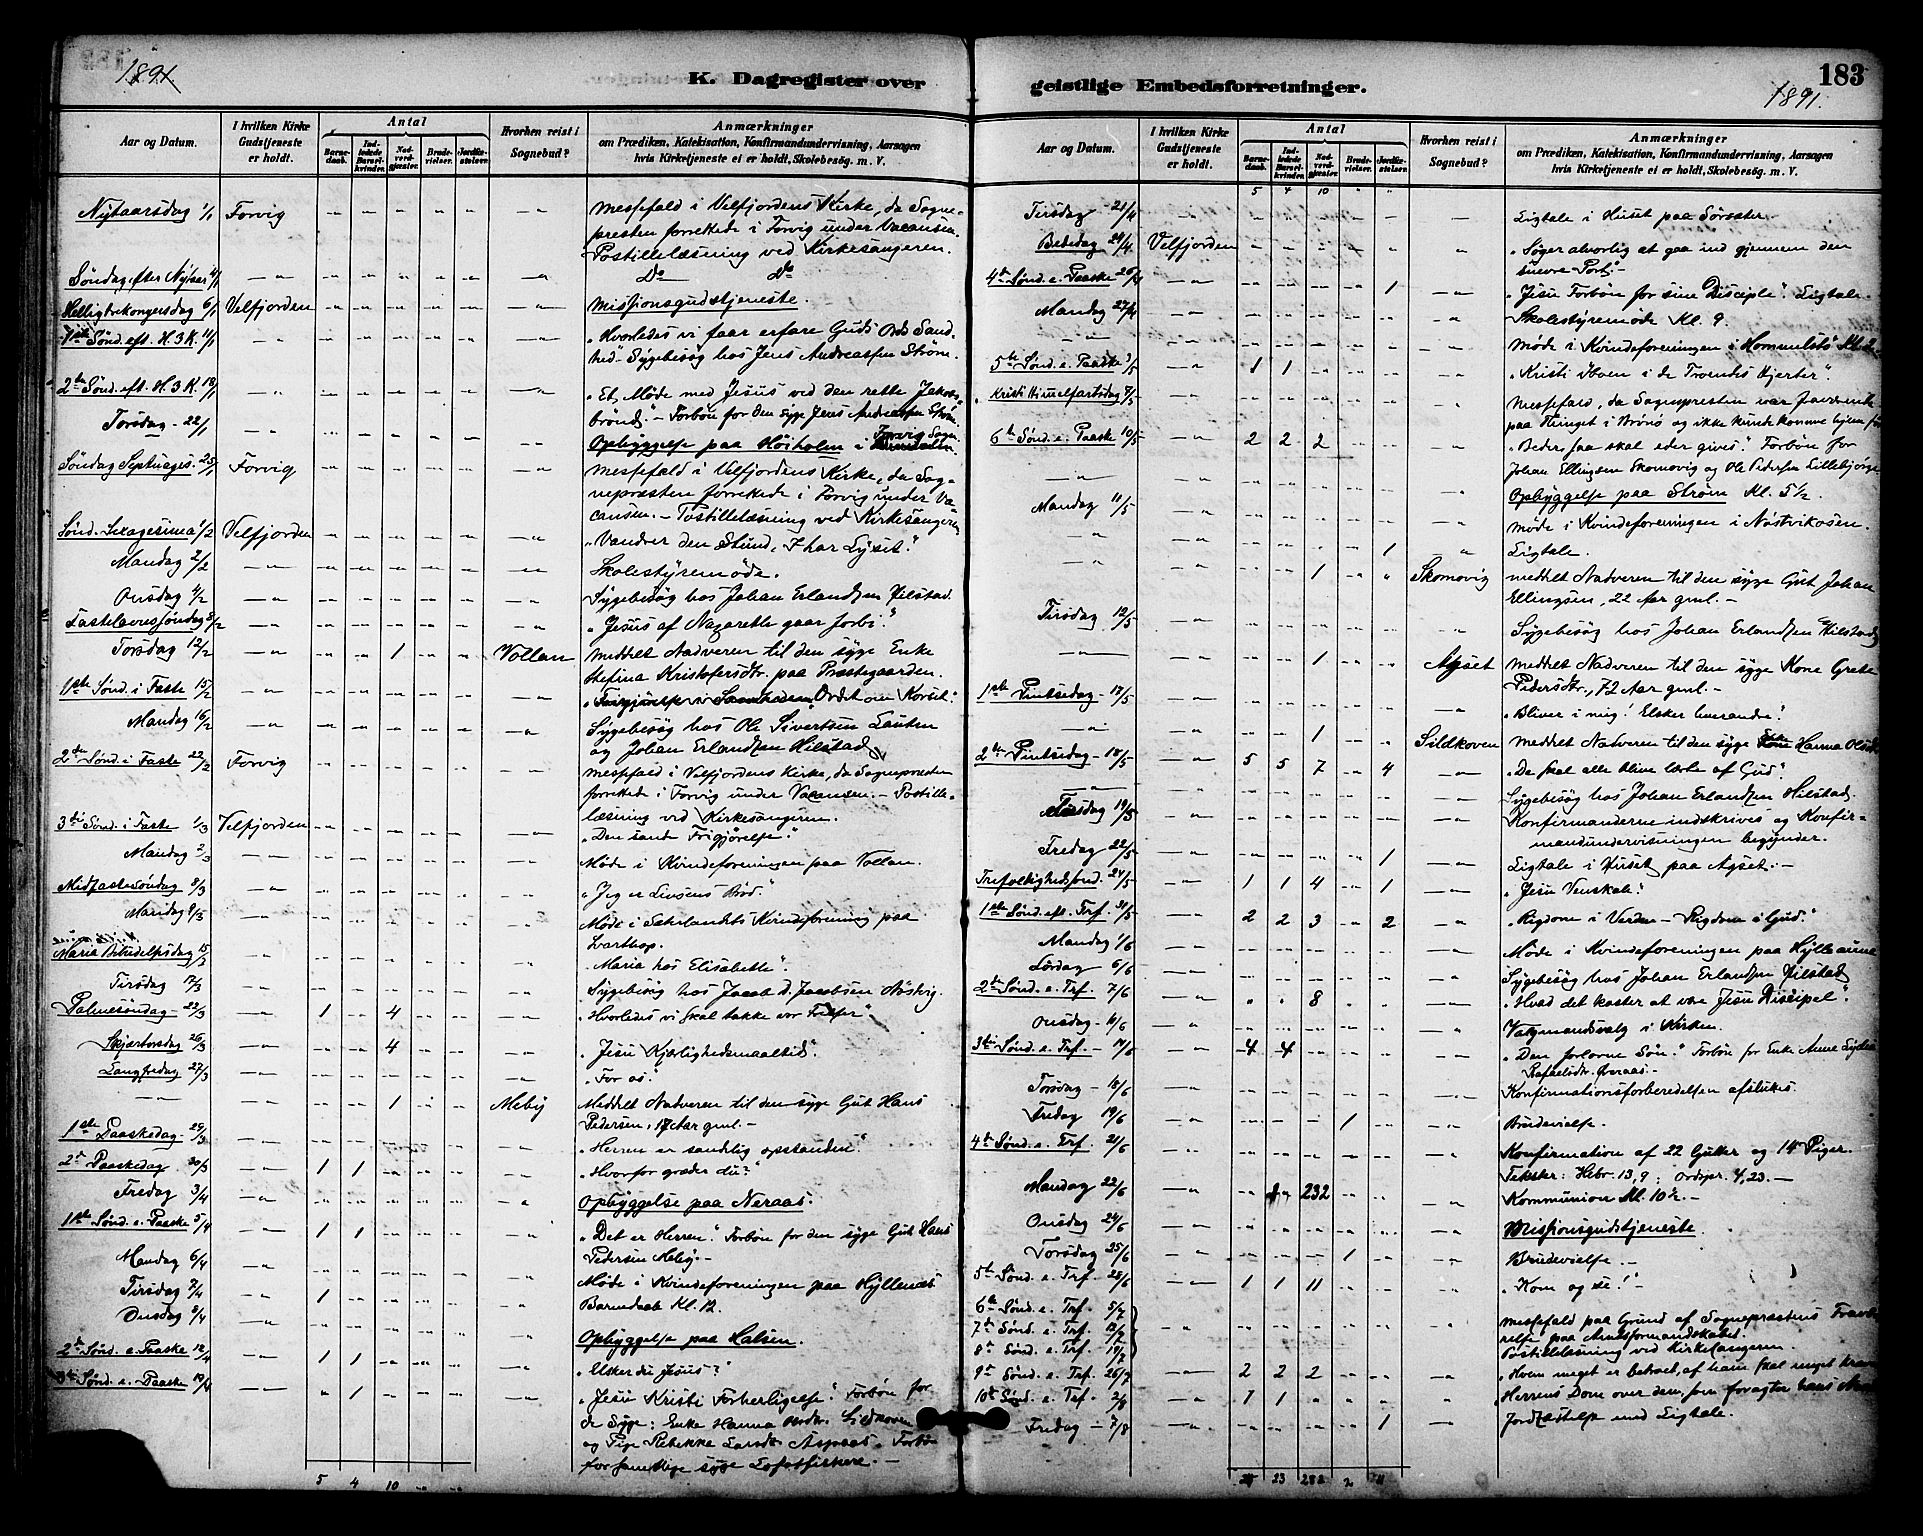 1891.
K. Dagregister over
Aar og Datum.
I hvilken Kirke Gudstjeneste er holdt.
Antal
Barnedaab.
Indledede Barselkvinder.
Nadverdgjæster.
Brudevielser.
Jordfæstelser.
Hvorhen reist i Sognebud?
Anmærkninger
om Prædiken, Katekisation, Konfirmandundervisning, Aarsagen
hvis Kirketjeneste ei er holdt, Skolebesøg. m. V.
Nytaarsdag 1/1 Forvig Messefald i Velfjordens Kirke, da Sogne-
presten forrettede i Forvig under Vacansen.
Postillelæsning ved Kirkesangeren.
Søndag efter Nytaar 4/1 Do Do
Helligtrekongersdag 6/1 Velfjorden Missionsgudstjeneste.
1ste Sønd. eft. H. 3 K. 11/1 "Hvorledes vi faar erfare Guds Ords Sand-
hed" - Sygebesøg hos Jens Andreassen Strøm.
2den Sønd. eft. H. 3 K. 18/1 "Et Møde med Jesus ved den rette Jakobs-
brønd." - Forbøn for den syge Jens Andreassen Strøm.
Torsdag - 22/1 Opbyggelse paa Høiholm i Forvig Sogn.
Søndag Septuages. 25/1 Forvig Messefald i Velfjordens Kirke, da Sog-
nepræsten forrettede i Forvig under Va-
cansen. - Postillelæsning ved Kirkesangeren
Sønd. Sexagesima 1/2 Velfjorden "Vandrer den Stund, I har Lyset."
Mandag 2/2 Skolestyremøde.
Onsdag 4/2 Sygebesøg hos Johan Erlandsen Hilstad.
Fastelavnssøndag 8/2 "Jesus af Nazareth gaar forbi."
Torsdag 12/2 1 Vollan Meddelt Nadveren til den syge Enke
Stefina Kristofersdtr. paa Præstegaarden.
1ste Sønd. i Faste 15/2 Ordet om Korset."
Mandag 16/2 Sygebesøg hos Ole Sivertsen Lauten
og Johan Erlandsen Hilstad
2den Sønd. i Faste 22/2 Forvig Messefald i Velfjordens Kirke, da Sognepresten
forrettede i Forvig under Vacansen. - Postille-
læsning ved Kirkesangeren.
3die Sønd. i Faste 1/3 Velfjorden "Den sande Frigjørelse."
Mandag 2/3 Møde i Kvindeforeningen paa Vollan.
Midfastesøndag 8/3 "Jeg er Livsens Brød."
Mandag 9/3 Møde i Kvindeforening paa
Maria Budelsesdag 15/3 "Maria hos Elisabeth".
Tirsdag 17/3 Sygebesøg hos Jacob D. Jacobsen Nøstvig.
Palmesøndag - 22/3 1 4 "Hvorledes vi skal takke vor Frelser"
Skjærtorsdag 26/3 4 "Jesu Kjærlighedsmaaltid".
Langfredag 27/3 "For os."
1 Meby Meddelt Nadveren til den syge Gut Hans
Pedersen, 17 Aar gml. -
1ste Paaskedag 29/3 "Herren er sandelig opstanden!"
2d Paaskedag 30/3 1 1 "Hvorfor græder du?"
Fredag 3/4 Opbyggelse paa Neraas.
1ste Sønd. e. Paaske 5/4 1 1 "Det er Herren." Forbøn for den syge Gut Hans
Pedersen Meby -
Mandag 6/4 Møde i Kvindeforeningen paa Hyllenæs
Tirsdag 7/4 1 Barnedaab Kl. 12.
Onsdag 8/4 Opbyggelse paa Halsen.
2d Sønd. e. Paaske 12/4 1 1 "Elsker du Jesus?"
3die Sønd. e. Paaske 19/4 1 "Jesu Kristi Forherligelse." Forbøn for
de Syge: Enke Hanna Sildkoven
og Pige Rebekka Larsdtr. Aspaas. Forbøn
for samtlige syge Lofotfiskere. -
5 4 10
183
1891.
geistlige Embedsforretninger.
Aar og Datum.
I hvilken Kirke Gudstjeneste er holdt.
Antal
Barnedaab.
Indledede Barselkvinder.
Nadverdgjæster.
Brudevielser.
Jordfæstelser.
Hvorhen reist i Sognebud?
Anmærkninger
om Prædiken, Katekisation, Konfirmandundervisning, Aarsagen
hvis Kirketjeneste ei er holdt, Skolebesøg. m. V.
5 4 10 " "
Tirsdag 21/4 Ligtale i Huset paa Sørsæter.
Bededag 24/4 Velfjorden "Søger alvorlig at gaa ind gjennem den
snevre Port." -
4de Sønd. e. Paaske 26/4 1 "Jesu Forbøn for sine Disciple". Ligtale.
Mandag 27/4 Skolestyremøde Kl. 9.
Møde i Kvindeforeningen i Hommelstø
5te Sønd. e. Paaske 3/5 1 1 "Kristi Iboen i de Troendes Hjerter".
Kristi Himmelfartsdag 7/5 Messefald, da Sognepresten var
paa Thinget i Brønø og ikke kunde komme hjem
6te Sønd. e. Paaske 10/5 2 2 2 "Beder, saa skal eder gives". Forbøn for
Johan Ellingsen Skomovig og Ole Pedersen Lillebjørge
Opbyggelse paa Strøm Kl. 5 1/2.
Mandag 11/5 Møde i Kvindeforeningen i Nøstvikosen.
1 Ligtale.
1 Skomovig Meddelt Nadveren til den syge Gut Johan
Ellingsen, 22 Aar gml. -
Tirsdag 12/5 Sygebesøg hos Johan Erlandsen Hilstad
1 Ayset Meddelt Nadveren til den syge Kone Grete
Pedersdtr., 72 Aar gml. -
1ste Pintsedag - 17/5 "Bliver i mig! Elsker hverandre!"
1 Sildkoven Meddelt Nadveren til den syge Enke Hanna
2den Pintsedag - 18/5 5 5 7 4 "De skal alle blive lærte af Gud".
Sygebesøg hos Johan Erlandsen Hilstad.
Tirsdag 19/5 Konfirmanderne indskrives og Konfir-
mandundervisningen begynder.
Fredag 22/5 1 Ligtale i Huset paa Ayset. -
Trefoldighedssønd. 24/5 1 1 4 1 "Jesu Venskab."
1ste Sønd. eft. Trf. 31/5 2 2 3 2 "Rigdom i Verden - Rigdom i Gud."
Mandag 1/6 Møde i Kvindeforeningen paa
Lørdag 6/6 Sygebesøg hos Johan Erlandsen Hilstad
2den Sønd. e. Trf. 7/6 8 "Hvad det koster at være Jesu Discipel".
Onsdag - 10/6 Valgmandsvalg i Kirken.
3die Sønd. e. Trf. - 14/6 4 4 "Den forlorne Søn." Forbøn for Enke Anne
Rafaelsdtr. Øveraas. -
Torsdag - 18/6 Konfirmationsforberedelsen afsluttes.
Fredag 19/6 1 Brudevielse.
4de Sønd. e. Trf. 21/6 Konfirmation af 22 Gutter og 14 Piger.
Tekster: Hebr. 13,9; Ordspr. 4,23. -
Mandag 22/6 232 Kommunion Kl. 10 1/2. -
Onsdag 24/6 Missionsgudstjeneste
Torsdag 25/6 1 Brudevielse -
5te Sønd. e. Trf. 28/6 1 1 11 "Kom og se!"
6te Sønd. e. Trf. 5/7 Messefald paa Grund af Sognepræstens Fravæ-
7de Sønd. e. Trf. 12/7 relse paa Amtsformandskabet.
8de Sønd. e. Trf. 19/7 Postillelæsning ved Kirkesangeren.
9de Sønd. e. Trf. 26/7 2 2 2 "Hvem meget er betroet, af ham skal meget kræves
10de Sønd. e. Trf. 2/8 1 1 Herrens Dom over dem, som foragter hans
Fredag - 7/8 1 Jordfæstelse med Ligtale.
23 282 2 11